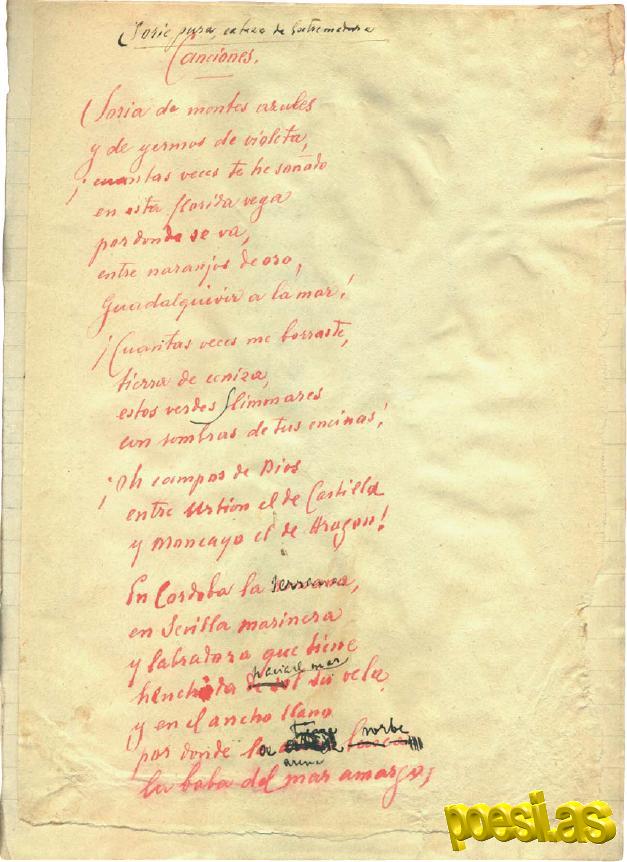 Soria pura, cabeza de Extremadura
Canciones.
Soria de montes azules
y de yermos de violeta,
¡cuantas veces te he soñado
en esta florida vega
por donde se va,
entre naranjos de oro,
Guadalquivir a la mar!
¡Cuantas veces me borraste,
tierra de ceniza,
estos verdes limonares
con sombras de tus encinas!
¡Oh campos de Dios
entre Urbion el de Castilla
y Moncayo el de Aragon!
En Cordoba la serrana,
en Sevilla marinera
y labradora que tiene
hacia el mar
henchida su vela
y en el ancho llano
por donde la arena sorbe
la baba del mar amargo,
poesi.as